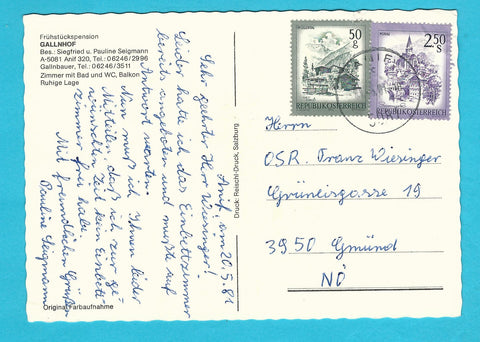 Frühstückspension
GALLNHOF
Bes.: Siegfried u. Pauline Seigmann
A-5081 Anif 320, Tel.: 06246/2996
Gallnbauer, Tel.: 06246/3511
Zimmer mit Bad und WC, Balkon
Ruhige Lage
Anif, am 20.5.81
Sehr geehrter Herr Wiesinger!
Leider hatte ich das Einbettzimmer
bereits angeboten und mußte auf
Antwort warten.
Nun muß ich Ihnen leider
Mitteilen, daß ich zur ge-
wünschten Zeit kein Einbett-
zimmer frei habe.
Mit freundlichen Grüßen
Pauline Seigmann
Original Farbaufnahme
Druck: Reischl-Druck, Salzburg
50
g
REPUBLIK ÖSTERREICH
2,50
S
REPUBLIK ÖSTERREICH
Herrn
OSR. Franz Wiesinger
Grünlirsgasse 19
3950 Gmünd
NÖ